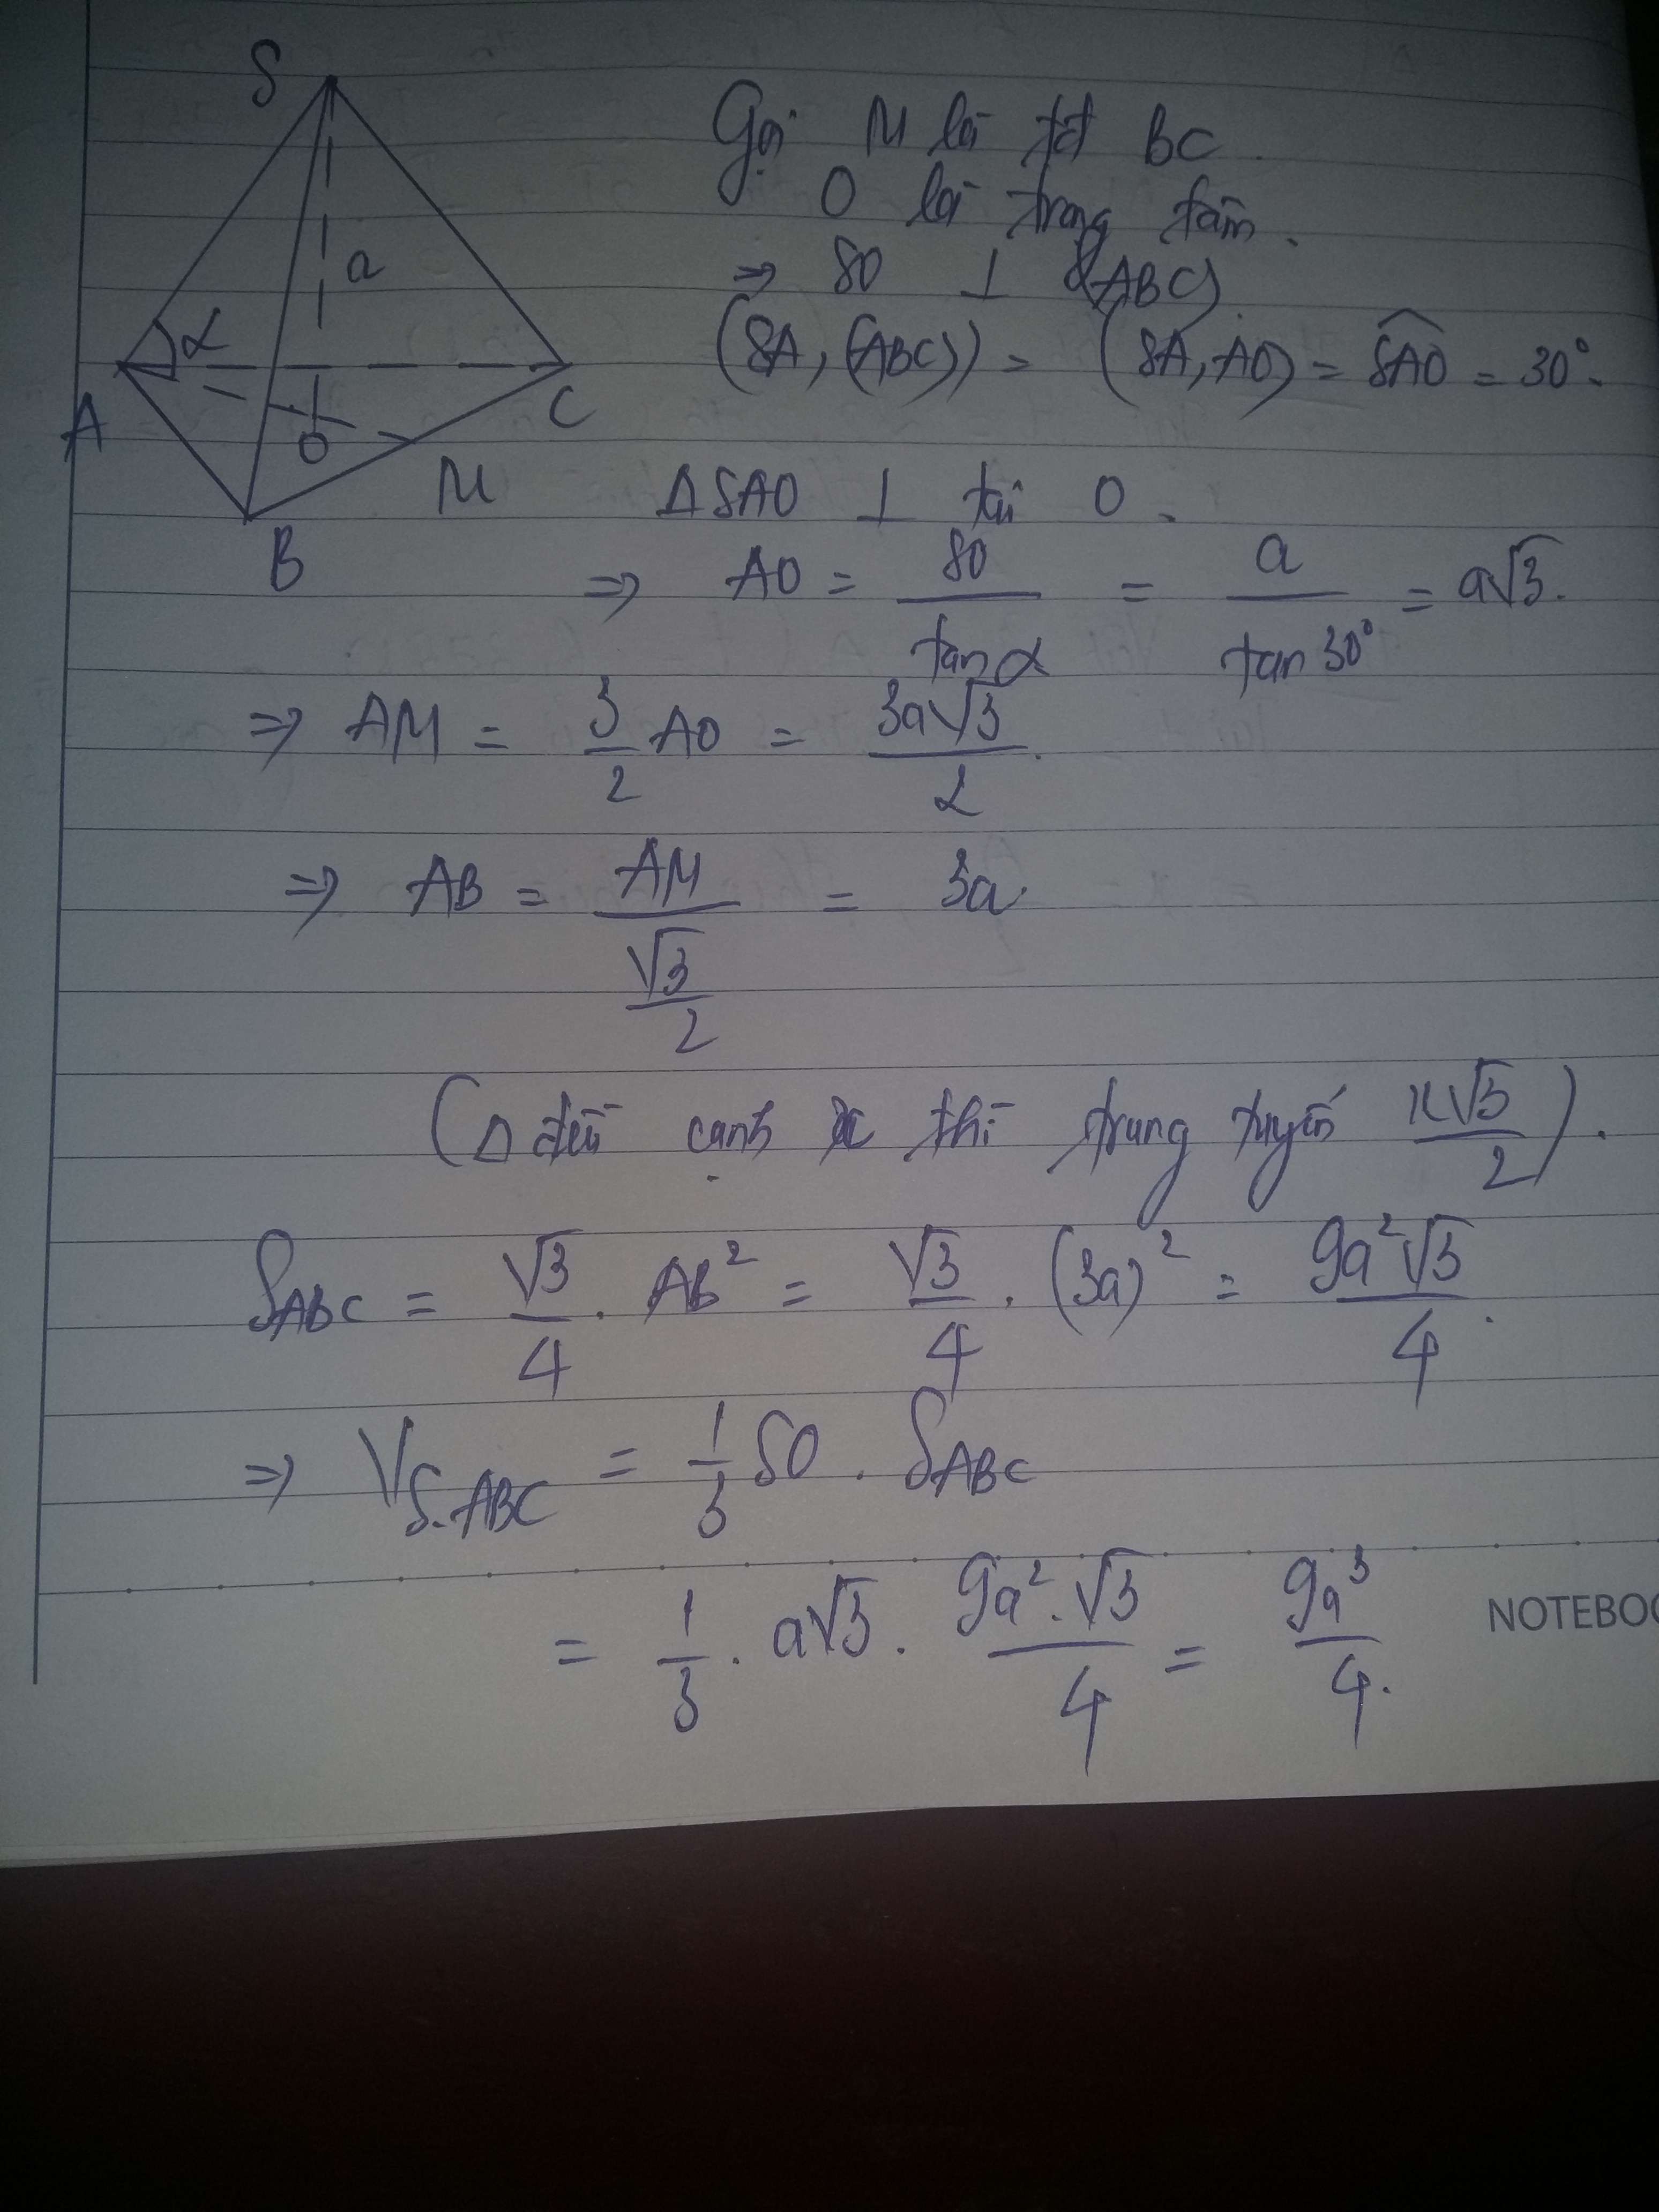 S
a
α
A
O
C
M
B
Gọi M là tđ BC.
O là trọng tâm.
⇒ SO ⊥ (ABC)
(SA, (ABC)) = (SA, AO) = \widehat{SAO} = 30°.
ΔSAO ⊥ tại O.
⇒ AO = \frac{SO}{tan α} = \frac{a}{tan 30°} = a√3.
⇒ AM = \frac{3}{2} AO = \frac{3a√3}{2}.
⇒ AB = \frac{AM}{\frac{√3}{2}} = 3a
(Δ đều cạnh x thì trung tuyến \frac{x√3}{2}).
S_{ABC} = \frac{√3}{4} . AB² = \frac{√3}{4} . (3a)² = \frac{9a²√3}{4}.
⇒ V_{S.ABC} = \frac{1}{3} SO . S_{ABC}
= \frac{1}{3} . a√3 . \frac{9a².√3}{4} = \frac{9a³}{4}.
NOTEBOO